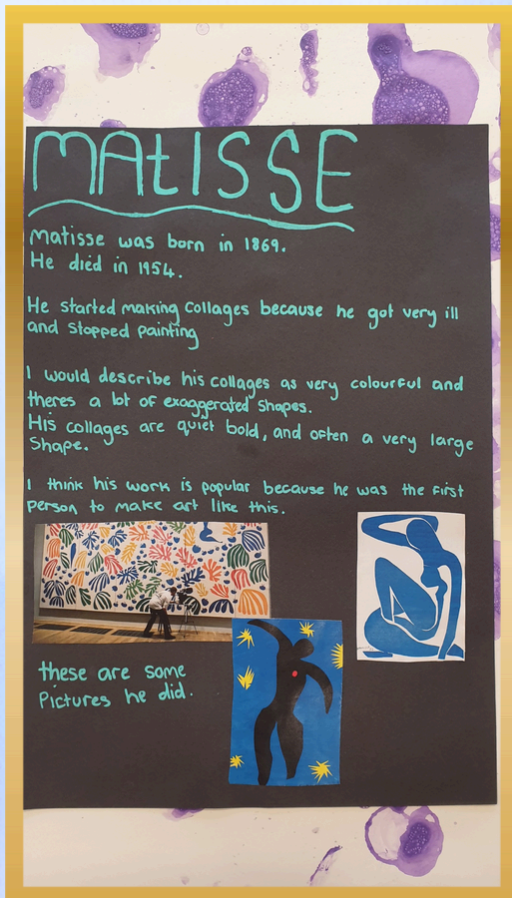 MAtISSE
Matisse was born in 1869.
He died in 1954.
He started making collages because he got very ill
and stopped painting
I would describe his collages as very colourful and
theres a lot of exaggerated shapes.
His collages are quiet bold, and often a very large
shape.
I think his work is popular because he was the first
person to make art like this.
these are some
Pictures he did.